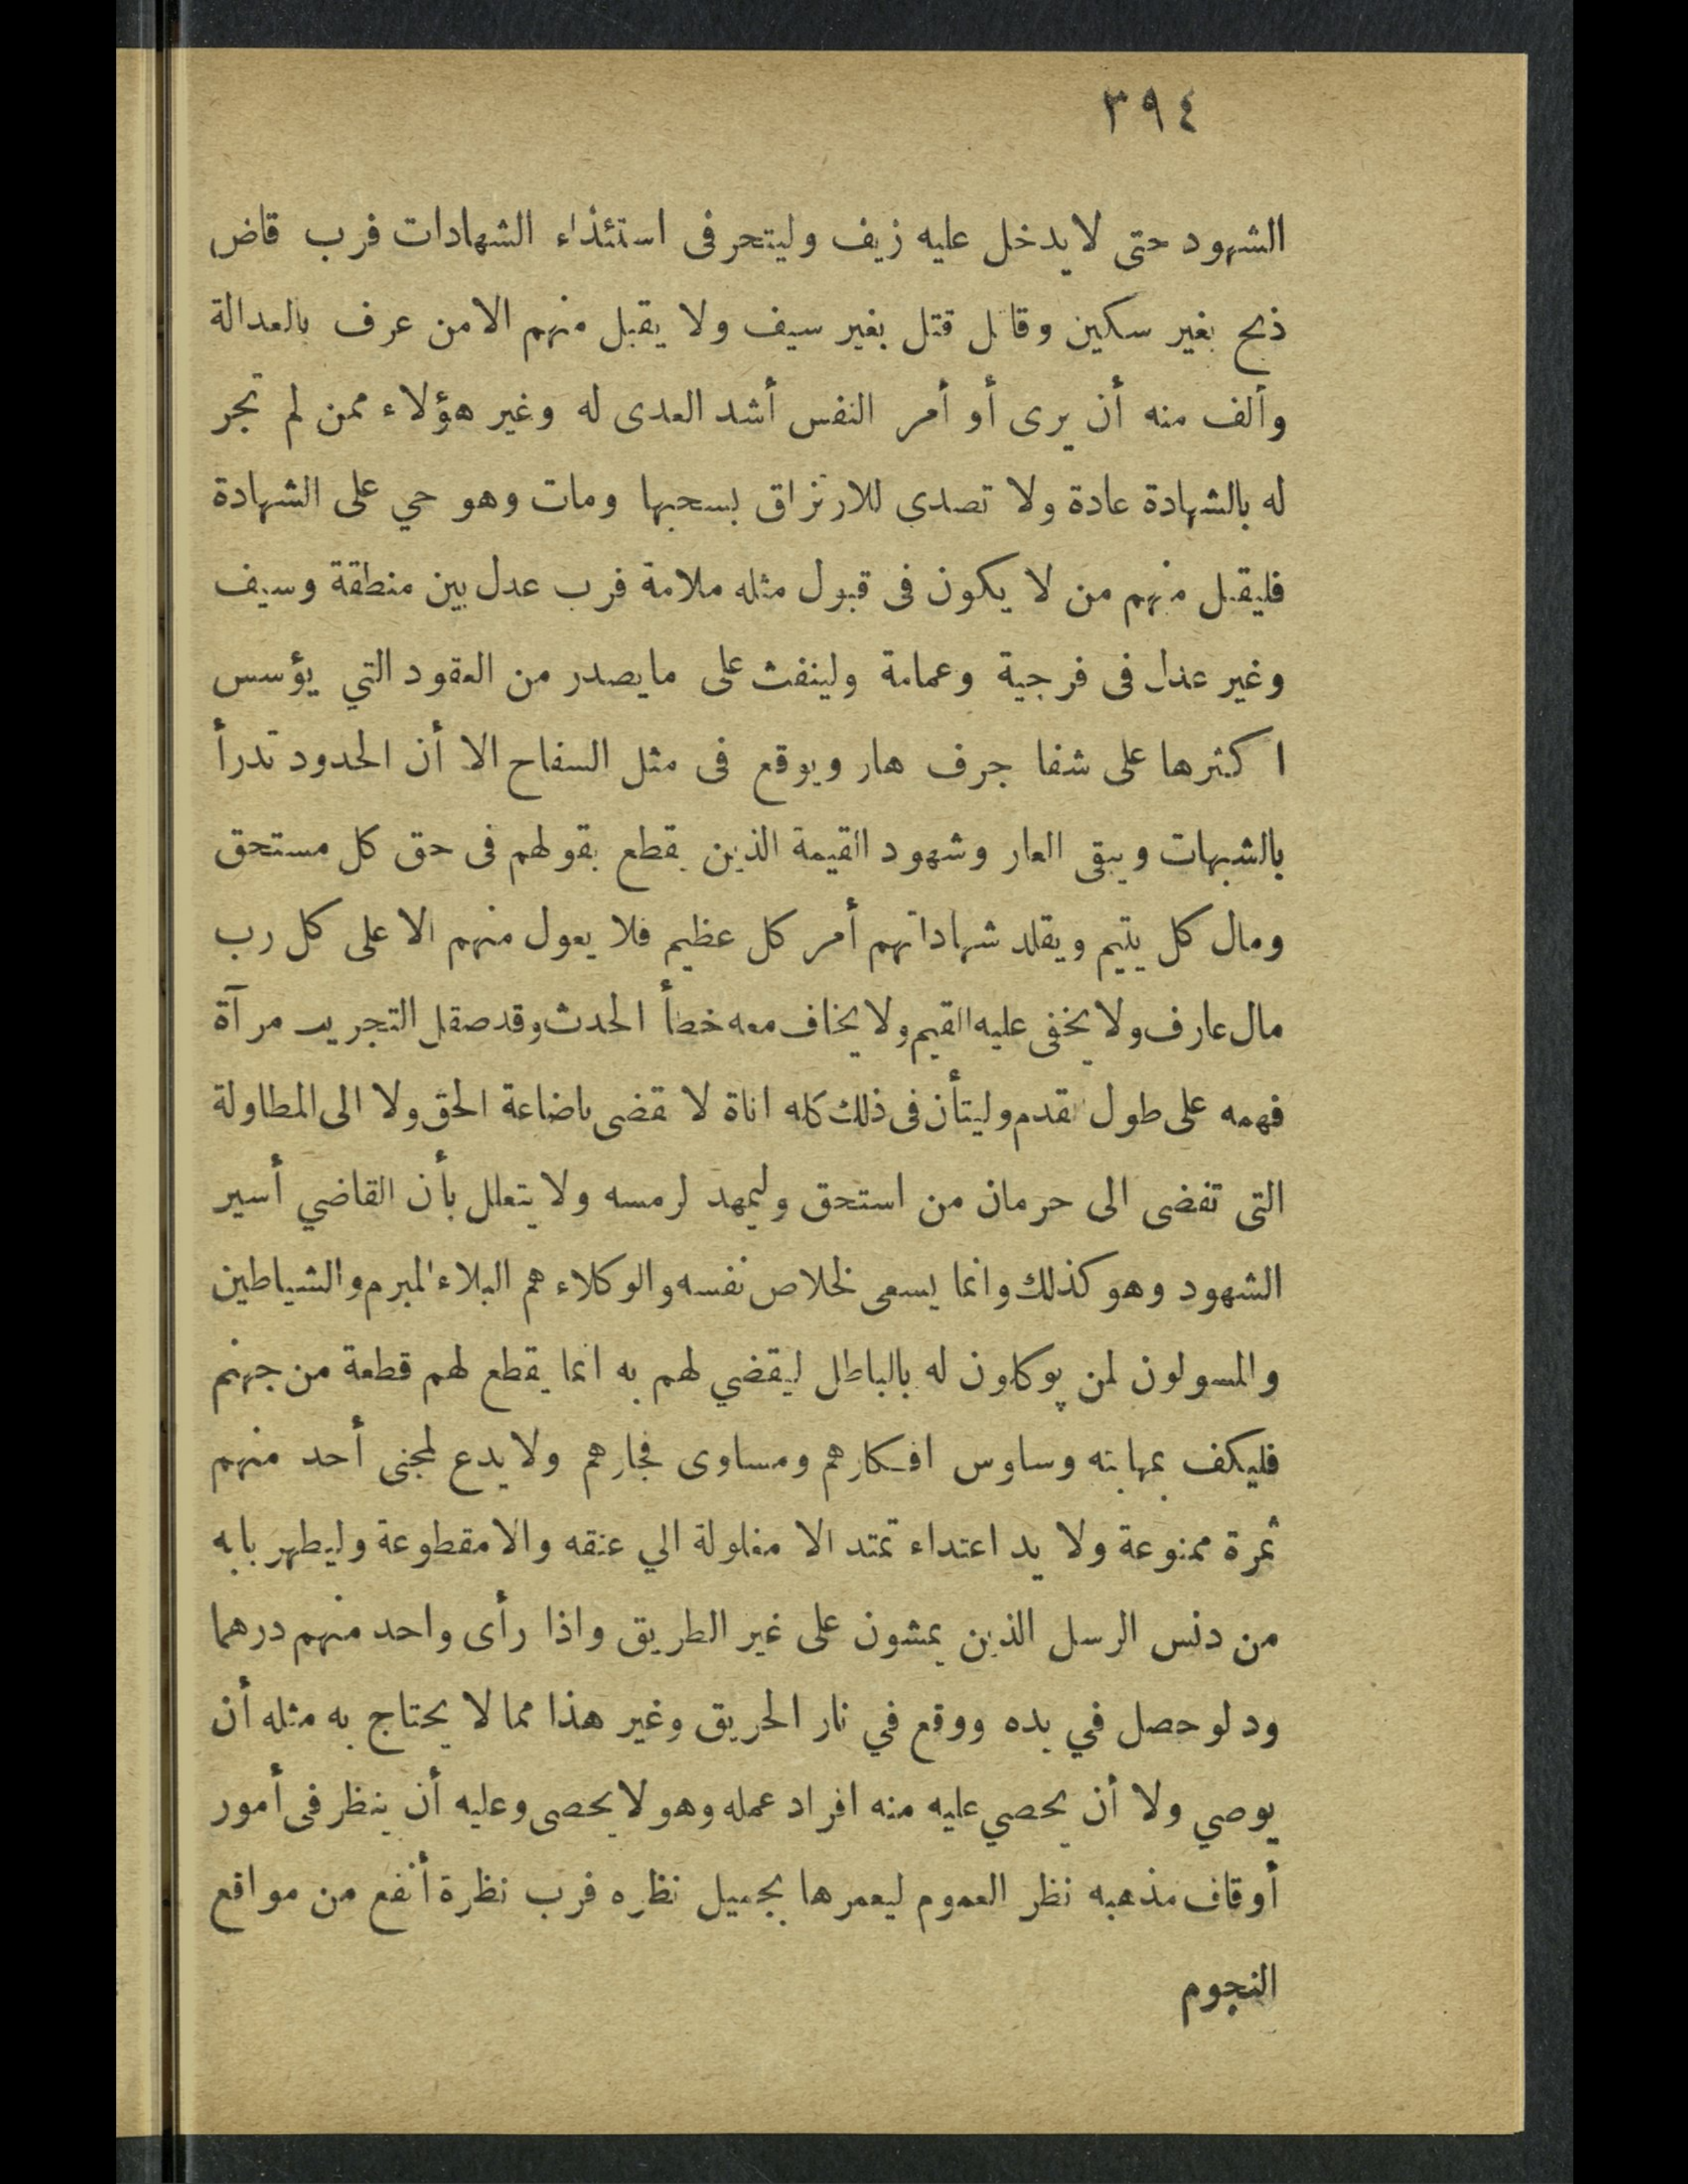 ٣٩٤
الشهود حتى لا يدخل عليه زيف وليتحر فى استئذاء الشهادات فرب قاض
ذبح بغير سكين وقاتل قتل بغير سيف ولا يقبل منهم الا من عرف بالعدالة
وألف منه أن يرى أو أمر النفس أشد العدى له وغير هؤلاء ممن لم تجر
له بالشهادة عادة ولا تصدى للارتزاق بسحبها ومات وهو حي على الشهادة
فليقبل منهم من لا يكون فى قبول مثله ملامة فرب عدل بين منطقة وسيف
وغير عدل فى فرجية وعمامة ولينفث على مايصدر من العقود التي يؤسس
اكثرها على شفا جرف هار ويوقع فى مثل السفاح الا أن الحدود تدرأ
بالشبهات ويبقى العار وشهود القيمة الذين يقطع بقولهم فى حق كل مستحق
ومال كل يتيم ويقلد شهاداتهم أمر كل عظيم فلا يعول منهم الا على كل رب
مال عارف ولا يخفى عليه القيم ولا يخاف معه خطأ الحدث وقد صقل التجريب مرآة
فهمه على طول تقدم وليتأن فى ذلك كله اناة لا تقضى باضاعة الحق ولا الى المطاولة
التى تفضى الى حرمان من استحق وليمهد لرمسه ولا يتعلل بأن القاضي أسير
الشهود وهو كذلك وانما يسعى لخلاص نفسه والوكلاء هم البلاء المبرم والشياطين
والمسولون لمن يوكلون له بالباطل ليقضي لهم به انما يقطع لهم قطعة من جهنم
فليكف بمهابته وساوس افكارهم ومساوى فجارهم ولا يدع لمجنى أحد منهم
ثمرة ممنوعة ولا يد اعتداء تمتد الا مغلولة الي عنقه والا مقطوعة وليطهر بابه
من دنس الرسل الذين يمشون على غير الطريق واذا رأى واحد منهم درهما
ود لو حصل في يده ووقع في نار الحريق وغير هذا مما لا يحتاج به مثله أن
يوصي ولا أن يحصي عليه منه افراد عمله وهو لا يحصى وعليه أن ينظر فى أمور
أوقاف مذهبه نظر العموم ليعمرها بجميل نظره فرب نظرة أنفع من مواقع
النجوم